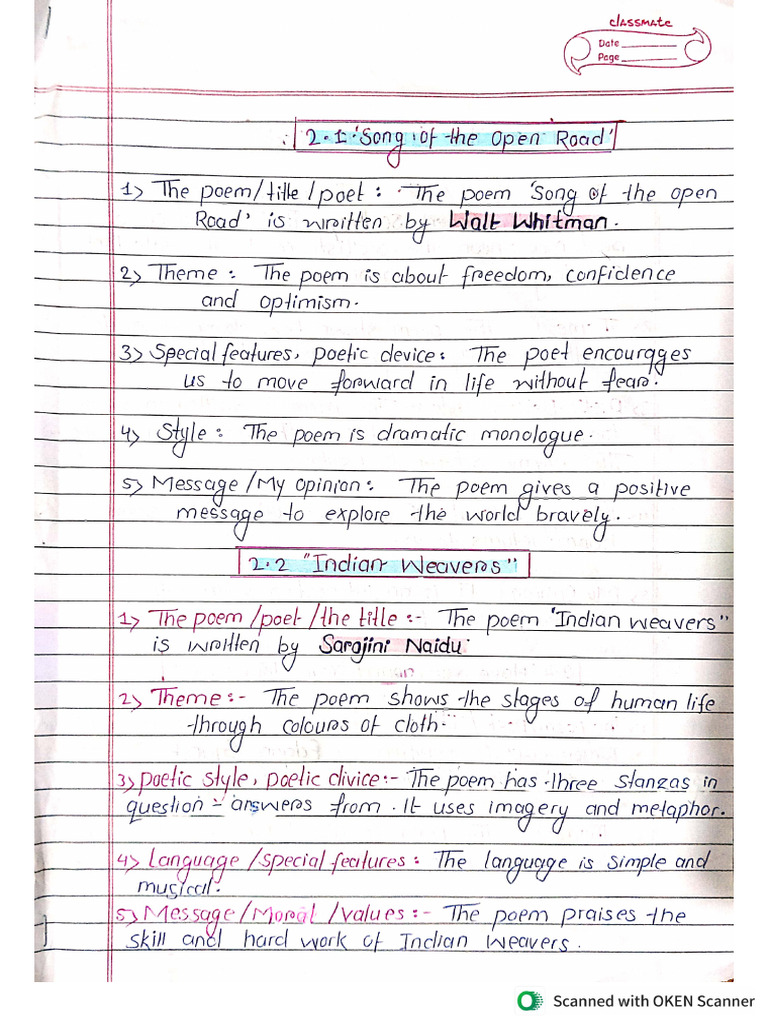 classmate
Date
Page
2.1 'Song of the Open Road'
1> The poem/title/poet : The poem 'Song of the open
Road' is written by Walt Whitman.
2> Theme : The poem is about freedom, confidence
and optimism.
3> Special features, poetic device : The poet encourages
us to move forward in life without fear.
4> Style : The poem is dramatic monologue.
5> Message/My opinion : The poem gives a positive
message to explore the world bravely.
2.2 "Indian Weavers"
1> The poem/poet/the title :- The poem "Indian weavers"
is written by Sarojini Naidu.
2> Theme :- The poem shows the stages of human life
through colours of cloth.
3> poetic style, poetic divice :- The poem has three stanzas in
question - answers from. It uses imagery and metaphor.
4> Language/special features : The language is simple and
musical.
5> Message/Moral/values :- The poem praises the
skill and hard work of Indian Weavers.
Scanned with OKEN Scanner